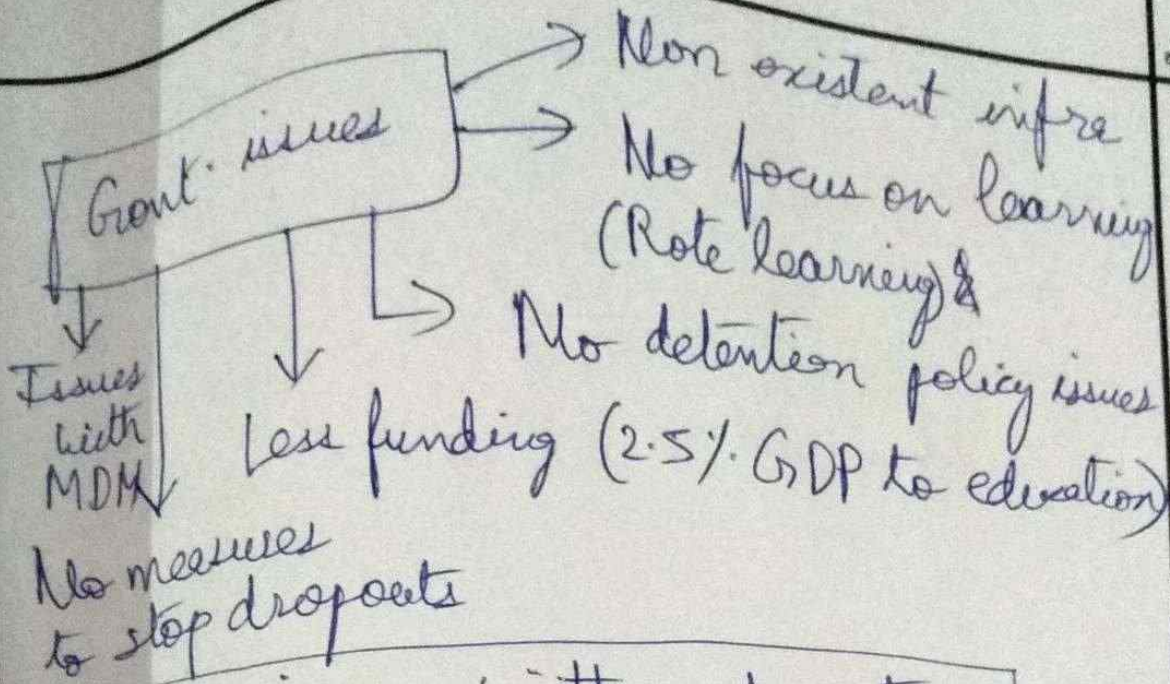 Govt. issues
Non existent infra
No focus on learning
(Rote learning) &
No detention policy issues
Less funding (2.5% GDP to education)
Issues
with
MDM
No measures
to stop dropouts